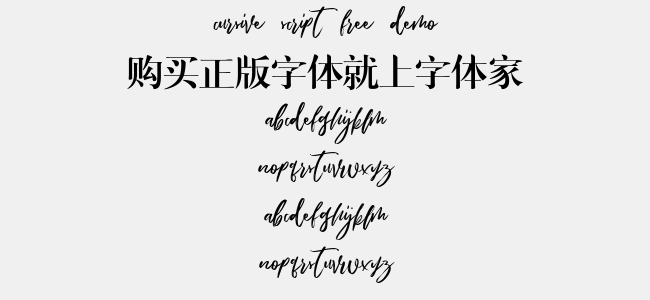 cursive script free demo
购买正版字体就上字体家
abcdefghijklm
nopqrstuvwxyz
abcdefghijklm
nopqrstuvwxyz